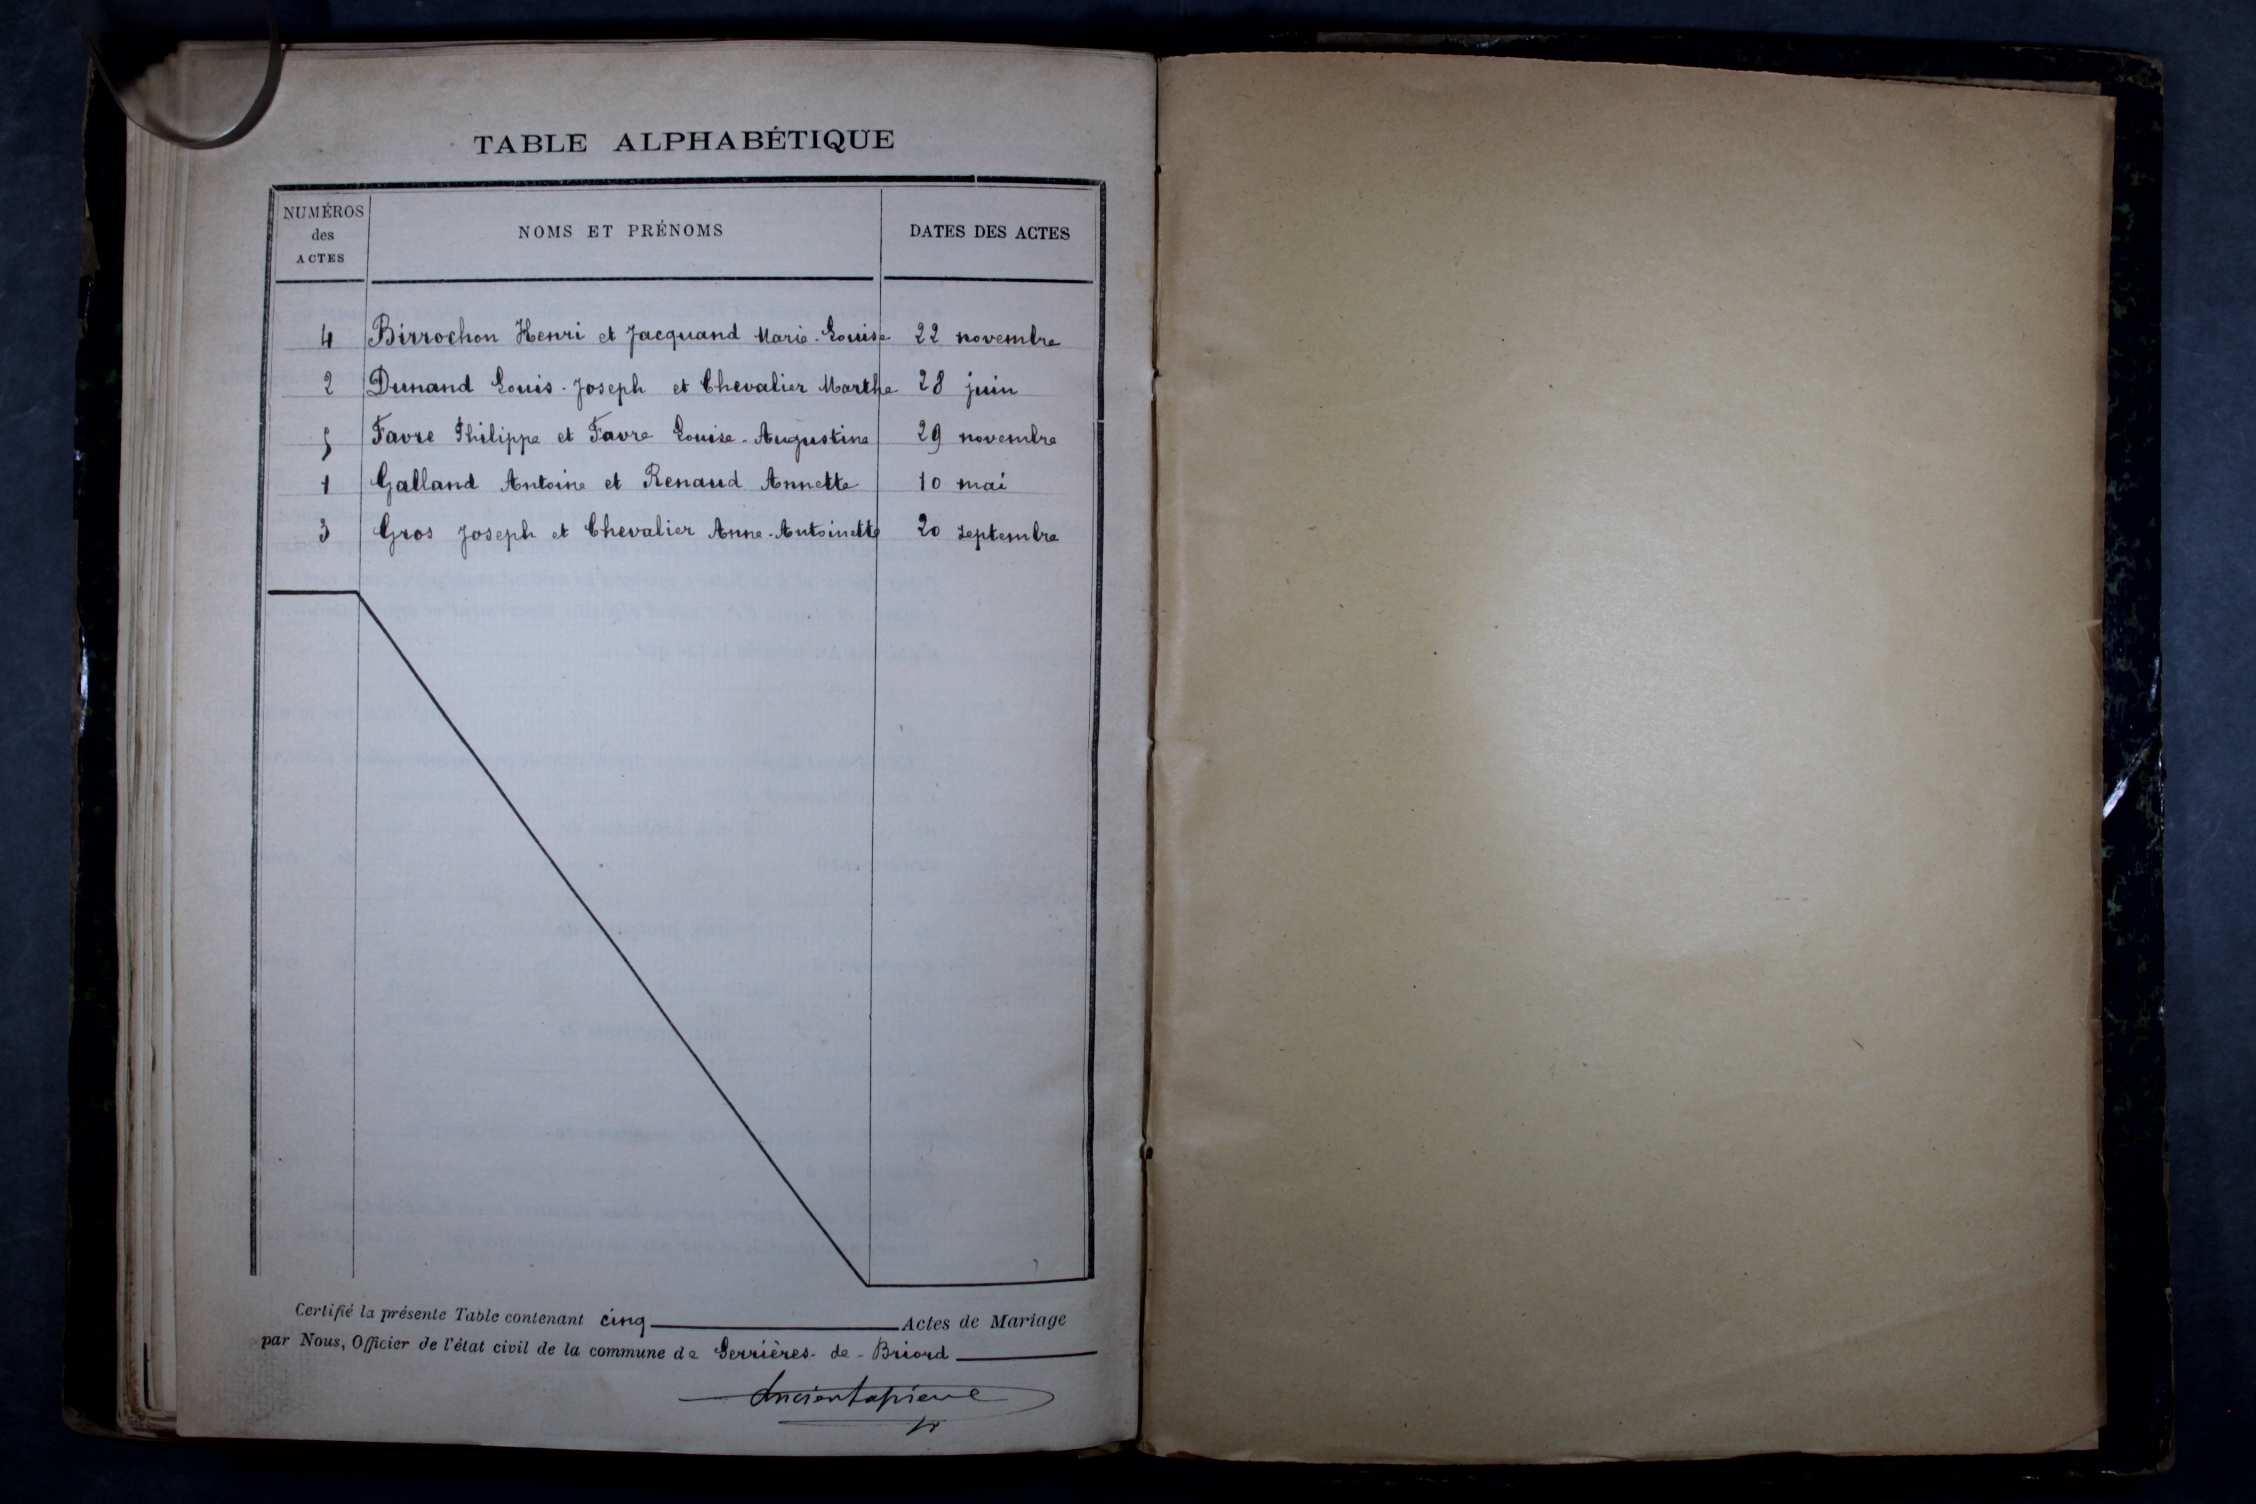 TABLE ALPHABÉTIQUE
NUMÉROS des ACTES NOMS ET PRÉNOMS DATES DES ACTES
4 Birrochon Henri et Jacquand Marie-Louise 22 novembre
2 Dunand Louis-Joseph et Chevalier Marthe 28 juin
5 Favre Philippe et Favre Louise-Augustine 29 novembre
1 Galland Antoine et Renaud Annette 10 mai
3 Gros Joseph et Chevalier Anne-Antoinette 20 septembre
Certifié la présente Table contenant cinq Actes de Mariage
par Nous, Officier de l'état civil de la commune de Serrières-de-Briord